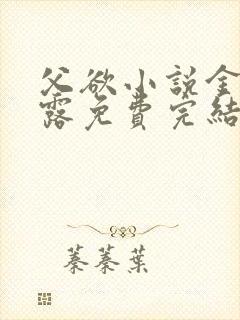 父欲小说金
露免費完結
蓁蓁葉